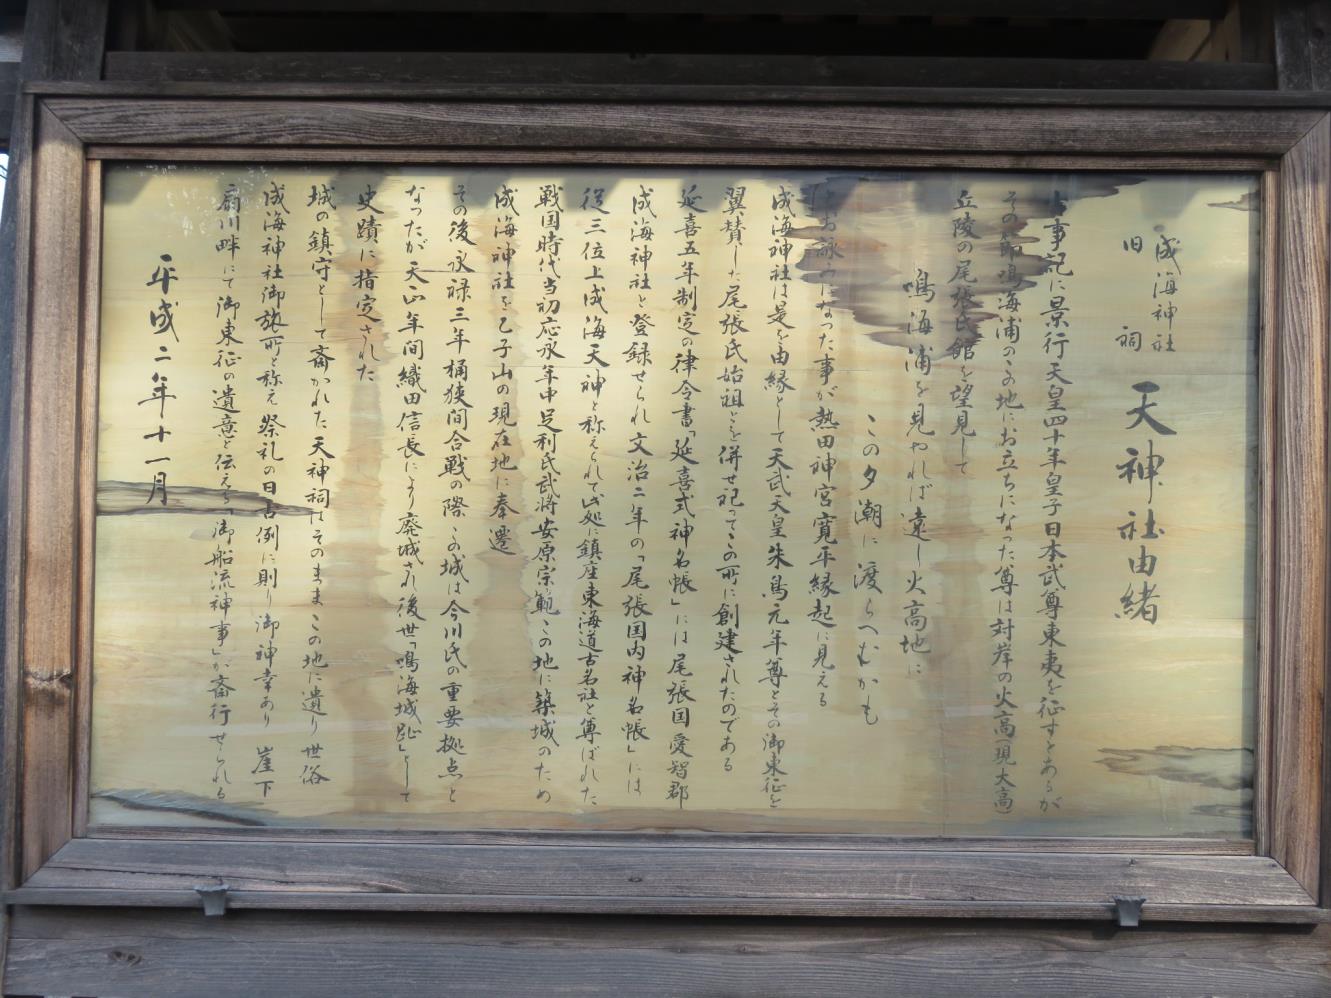 成海神社
旧祠 天神社由緒
古事記に景行天皇四十年皇子日本武尊東夷を征すとあるが
その節鳴海浦のこの地にお立ちになった尊は対岸の火高(現大高)
丘陵の尾張氏館を望見して
鳴海浦を見やれば遠し火高地に
この夕潮に渡らへむかも
とお詠みになった事が熱田神宮寛平縁起に見える
成海神社は是を由縁として天武天皇朱鳥元年尊とその御東征を
翼賛した尾張氏始祖とを併せ祀てこの所に創建されたのである
延喜五年制定の律令書「延喜式神名帳」には尾張国愛智郡
成海神社と登録せられ文治二年の「尾張国内神名帳」には
従三位上成海天神と称えられて此処に鎮座東海道古名社と尊ばれた
戦国時代当初応永年中足利氏武将安原宗範この地に築城のため
成海神社を乙子山の現在地に奉遷
その後永禄三年桶狭間合戦の際この城は今川氏の重要拠点と
なったが天正年間織田信長により廃城され後世「鳴海城趾」として
史蹟に指定された
城の鎮守として斎かれた天神祠はそのままこの地に遺り世俗
成海神社御旅所と称え祭礼の日古例に則り御神幸あり 崖下
扇川畔にて御東征の遺意を伝える「御船流神事」が斎行せられる
平成二年十一月